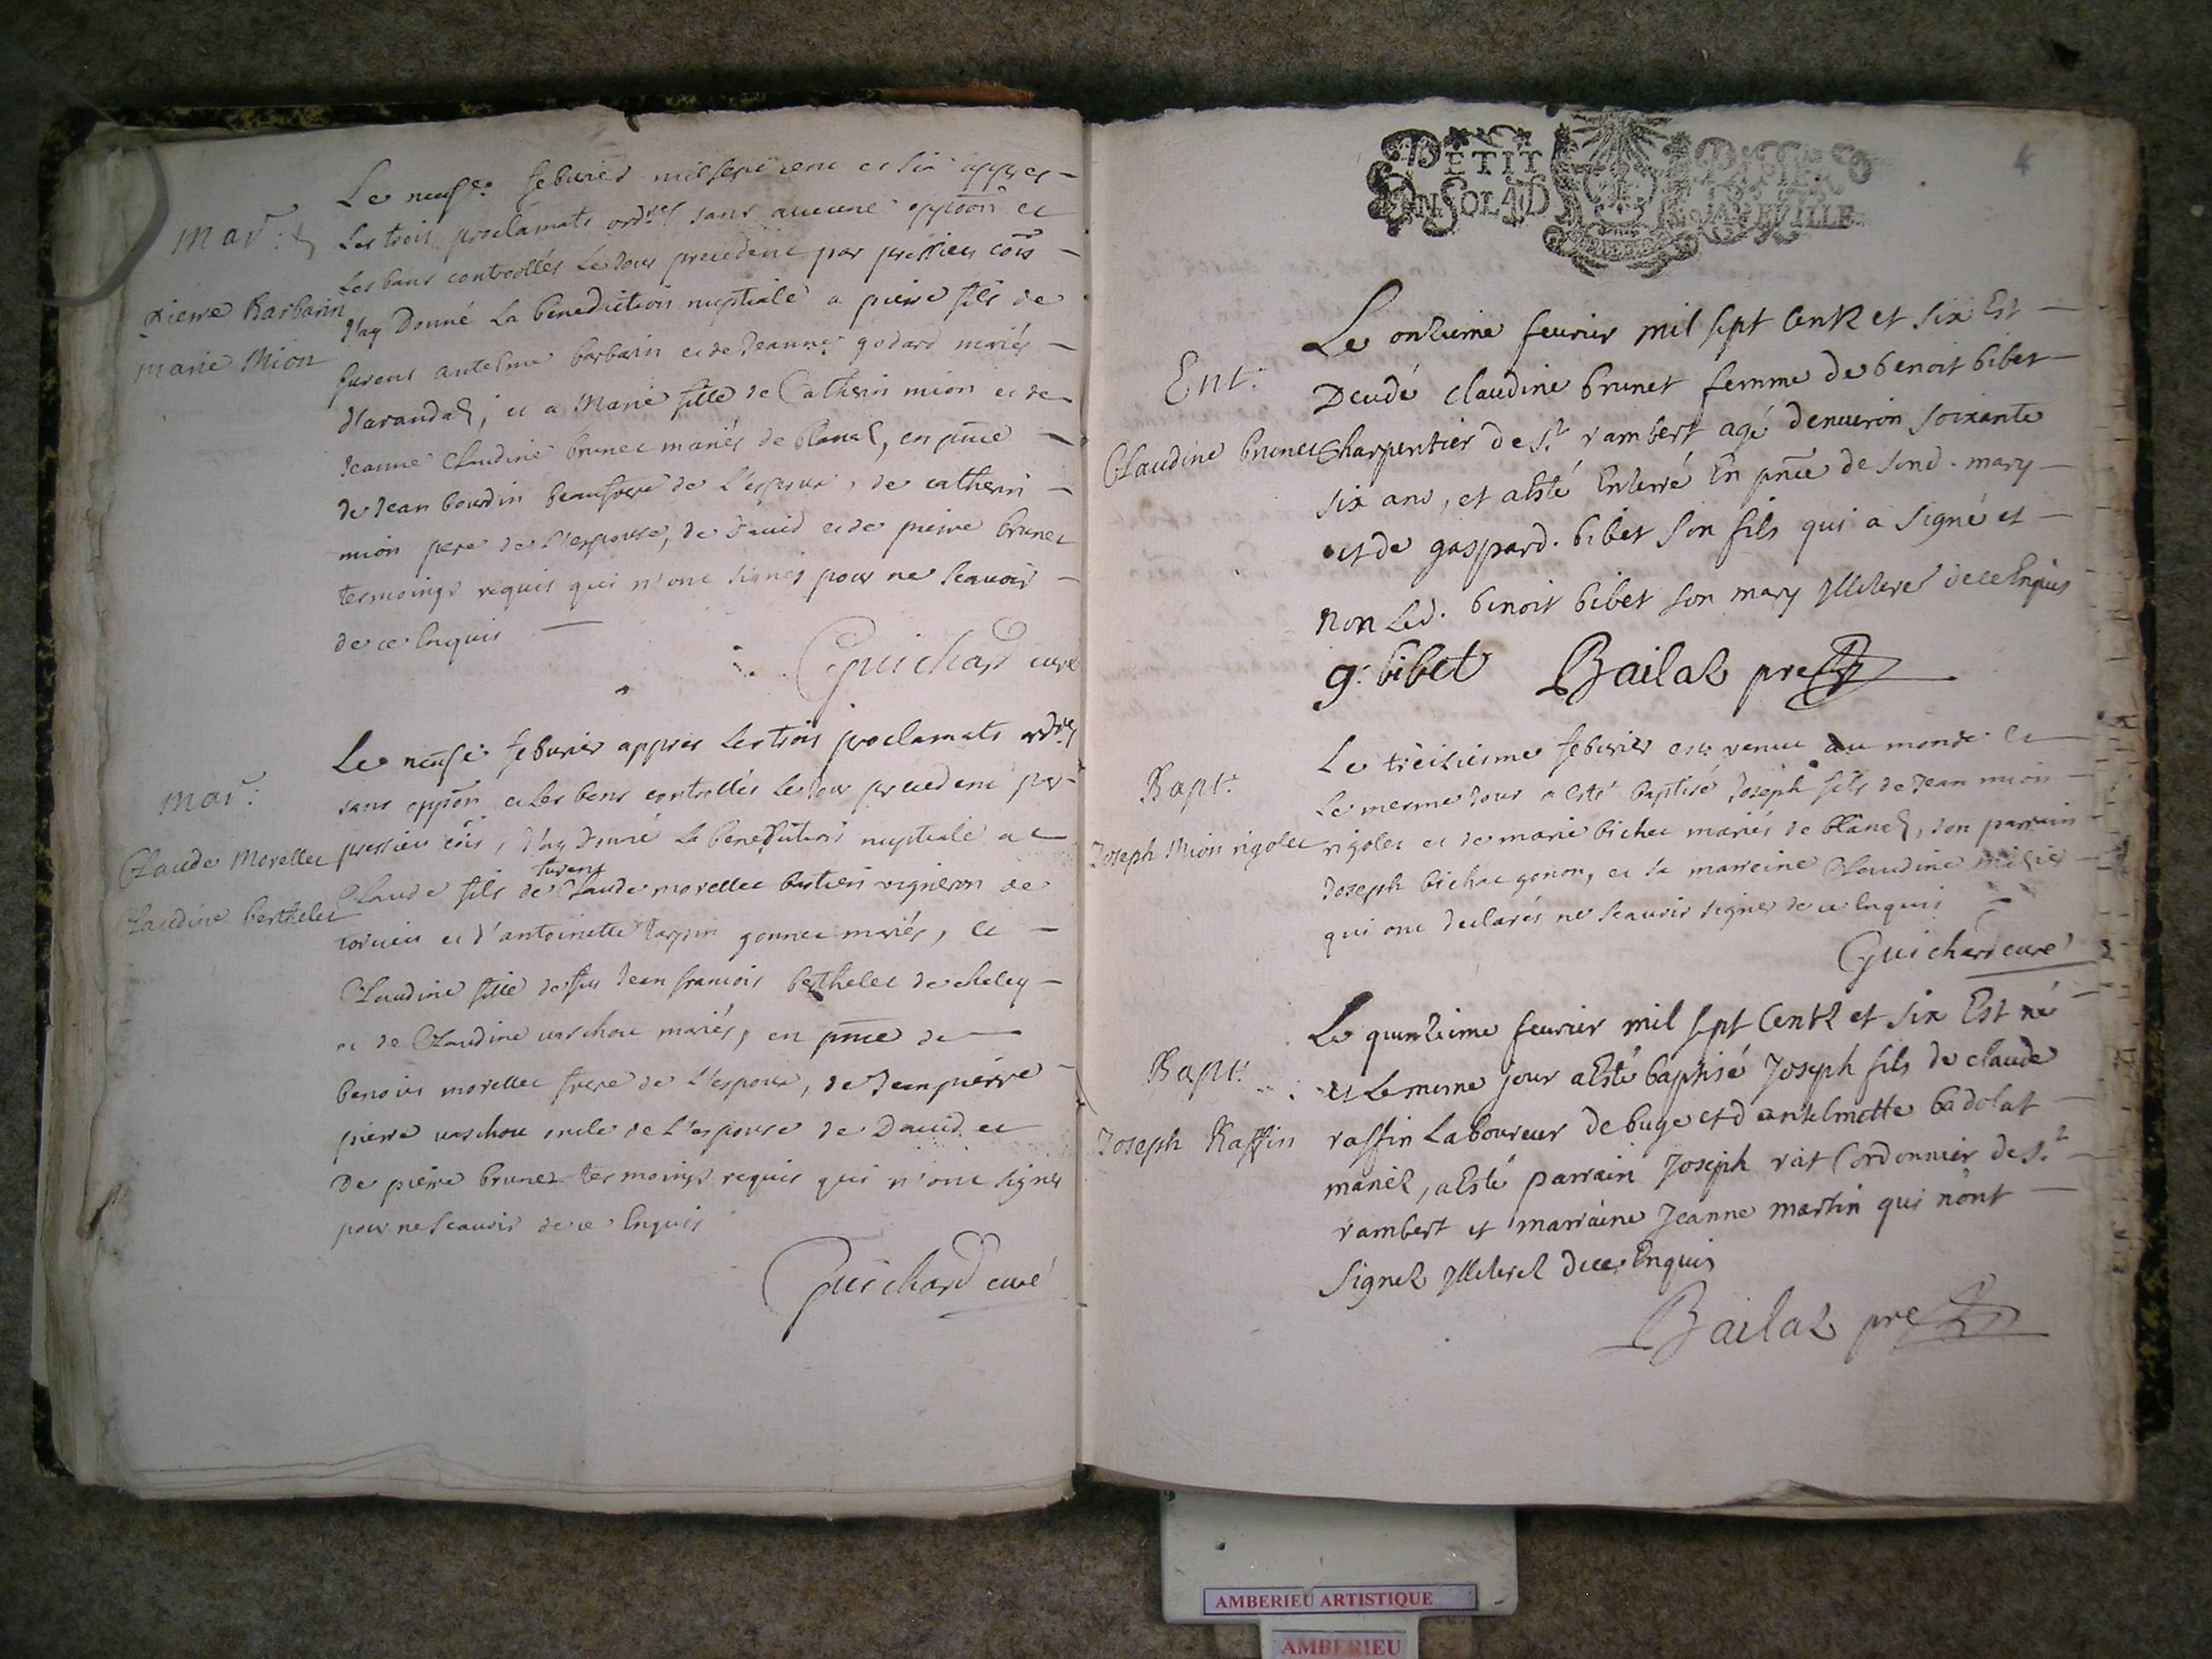 Mar:
Pierre Barbarin
Marie Mion
Le neufe. feburier mil sept cent et six appres
Les trois proclamats ordres sans aucune oppoôn et
Les bans controllés Le Jour precedent par pressieu côis
J'ay Donné La benediction nuptiale a pierre fils de
furent antelme barbarin et de Jeanne godard mariés
d'arandaz, et a Marie fille de Catherin mion et de
Jeanne Claudine brunet mariés de blanaz, en pñce
de Jean bourdin beaufrere de L'espoux, de catherin
mion pere de L'espouse, de David et de pierre brunet
tesmoings requis qui n'ont signés pour ne scavoir
de ce Enquis
Guichard curé
Mar:
Claude Morellet
Claudine berthelet
Le neufe feburier appres Les trois proclamats ordres
sans oppôn et Les bans controllés Le Jour precedent par
pressieu côis, J'ay Donné La benediction nuptiale a
furent
Claude fils de Claude morellet bastien vigneron de
torcieu et d'antoinette gonnet mariés, et
Claudine fille de fut Jean francois berthelet de cheley
et de Claudine varchou mariés, en pñce de
benoict morellet frere de L'espoux, de Jean pierre
pierre varchou oncle de L'espouse de David et
De pierre brunet tesmoings requis qui n'ont signés
pour ne scavoir de ce Enquis
Guichard curé
PETIT PAPIER
4
Ent:
Claudine brunet
Le onzieme feurier mil sept Centz et six Est
Decedé Claudine brunet femme de benoit bibet
Charpentier de St rambert agé denuiron soixante
six ans, et aEsté Enterré En pñce de sond. mary
et de gaspard. bibet son fils qui a signé et
non Led. benoit bibet son mary Jlleteré de ce Enquis
g. bibet Bailaz pre
Bapt:
Joseph Mion rigolet
Le treiziesme feburier est venu au monde et
Le mesme Jour a esté baptisé Joseph fils de Jean mion
rigolet et de marie bichet mariés de blanaz, son parrain
Joseph bichat gonon, et sa marreine Claudine
qui ont declarés ne scauoir signer de ce Enquis
Guichard curé
Bapt:
Joseph Raffin
Le quinzieme feurier mil sept Centz et six Est né
et Le mesme jour aEsté baptisé Joseph fils de claude
raffin Laboureur de buge et d'antelmette badolat
mariéz, aEsté parrain Joseph rat Cordonnier de St
rambert et marraine Jeanne martin qui n'ont
signéz Jlleteréz de ce Enquis
Bailaz pre
AMBERIEU ARTISTIQUE
AMBERIEU